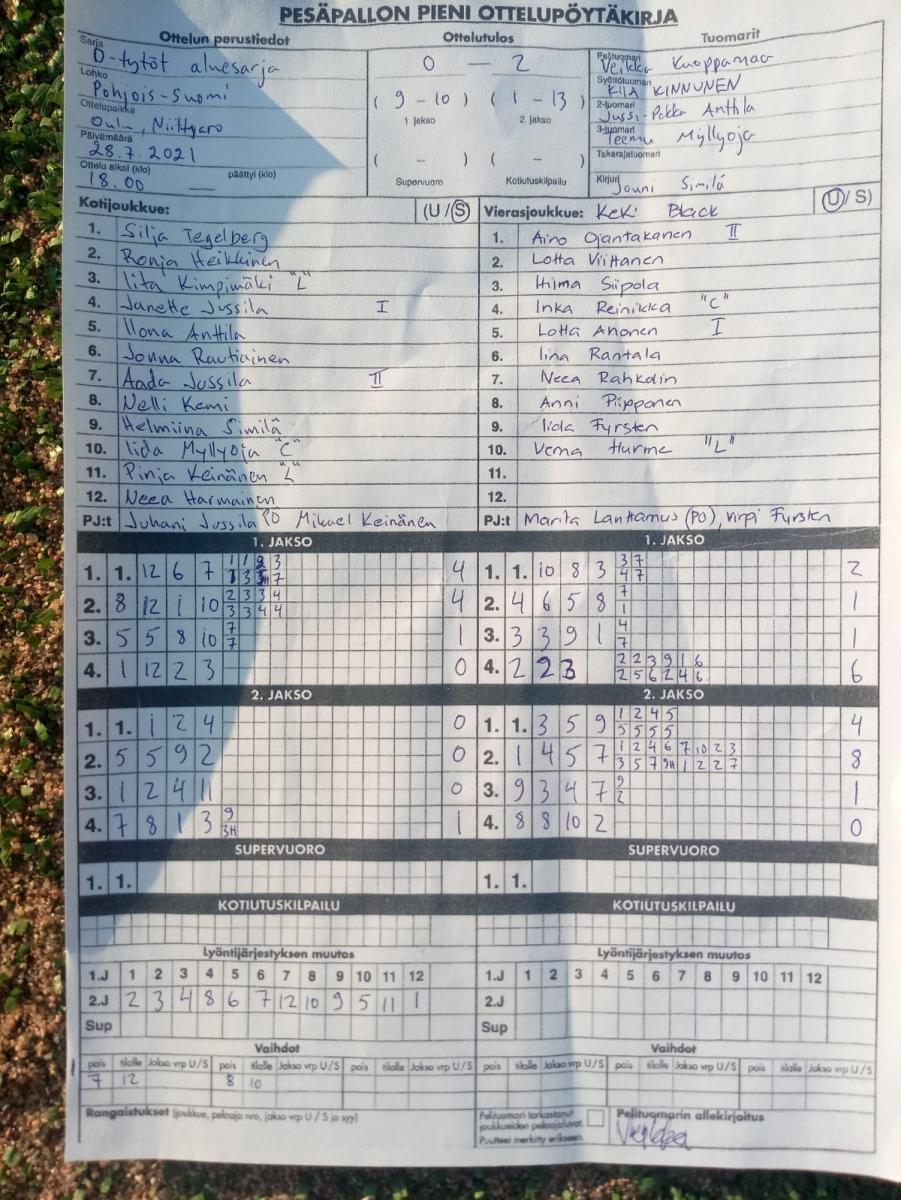 PESÄPALLON PIENI OTTELUPÖYTÄKIRJA
Ottelun perustiedot
Sarja
D-tytöt aluesarja
Lohko
Pohjois-Suomi
Ottelupaikka
Oulu, Niittyaro
Päivämäärä
28.7.2021
Ottelu alkoi (klo) päättyi (klo)
18.00
Ottelutulos
0 — 2
(9 – 10) (1 – 13)
1. jakso 2. jakso
( – ) ( – )
Supervuoro Kotiutuskilpailu
Tuomarit
Pelituomari
Veikko Kuoppamaa
Syöttötuomari
KINNUNEN
2-tuomari
Jussi-Pekka Anttila
3-tuomari
Teemu Myllyoja
Takarajatuomari
Kirjuri
Jouni Similä
Kotijoukkue: (U/S)
1. Silja Tegelberg
2. Ronja Heikkinen
3. Iita Kimpimäki "L"
4. Janette Jussila I
5. Ilona Anttila
6. Jonna Rautiainen
7. Aada Jussila II
8. Nelli Kemi
9. Helmiina Similä
10. Iida Myllyoja "C"
11. Pinja Keinänen "L"
12. Neea Harmainen
PJ:t Juhani Jussila PO Mikael Keinänen
Vierasjoukkue: KeKi Black (U/S)
1. Aino Ojantakanen II
2. Lotta Viittanen
3. Hilma Siipola
4. Inka Reinikka "C"
5. Lotta Ahonen I
6. Iina Rantala
7. Neea Rahkolin
8. Anni Piipponen
9. Iida Fyrsten
10. Verna Hurme "L"
11.
12.
PJ:t Marita Lanttamus (PO), Virpi Fyrsten
1. JAKSO
1. 1. 12 6 7 4
2. 8 12 1 10 2 3 3 4 4
3 3 4 4
3. 5 5 8 10 7 1
7
4. 1 12 2 3 0
1. JAKSO
1. 1. 10 8 3 3 7 2
4 7
2. 4 6 5 8 7 1
1
3. 3 3 9 1 4 1
7
4. 2 2 3 2 2 3 9 1 6 6
2 5 6 2 4 6
2. JAKSO
1. 1. 1 2 4 0
2. 5 5 9 2 0
3. 1 2 4 11 0
4. 7 8 1 3 9 1
3H
2. JAKSO
1. 1. 3 5 9 1 2 4 5 4
5 5 5 5
2. 1 4 5 7 1 2 4 6 7 10 2 3 8
3 5 7 9H 1 2 2 7
3. 9 3 4 7 9 1
2
4. 8 8 10 2 0
SUPERVUORO
1. 1.
SUPERVUORO
1. 1.
KOTIUTUSKILPAILU
KOTIUTUSKILPAILU
Lyöntijärjestyksen muutos
1.J 1 2 3 4 5 6 7 8 9 10 11 12
2.J 2 3 4 8 6 7 12 10 9 5 11 1
Sup
Lyöntijärjestyksen muutos
1.J 1 2 3 4 5 6 7 8 9 10 11 12
2.J
Sup
Vaihdot
pois tilalle Jakso vrp U/S pois tilalle Jakso vrp U/S pois tilalle Jakso vrp U/S
7 12 8 10
Vaihdot
pois tilalle Jakso vrp U/S pois tilalle Jakso vrp U/S pois tilalle Jakso vrp U/S
Rangaistukset (joukkue, pelaaja nro, jakso vrp U / S ja syy)
Pelituomari tarkastanut
joukkueiden pelaajaluvat.
Puutteet merkitty erikseen.
Pelituomarin allekirjoitus